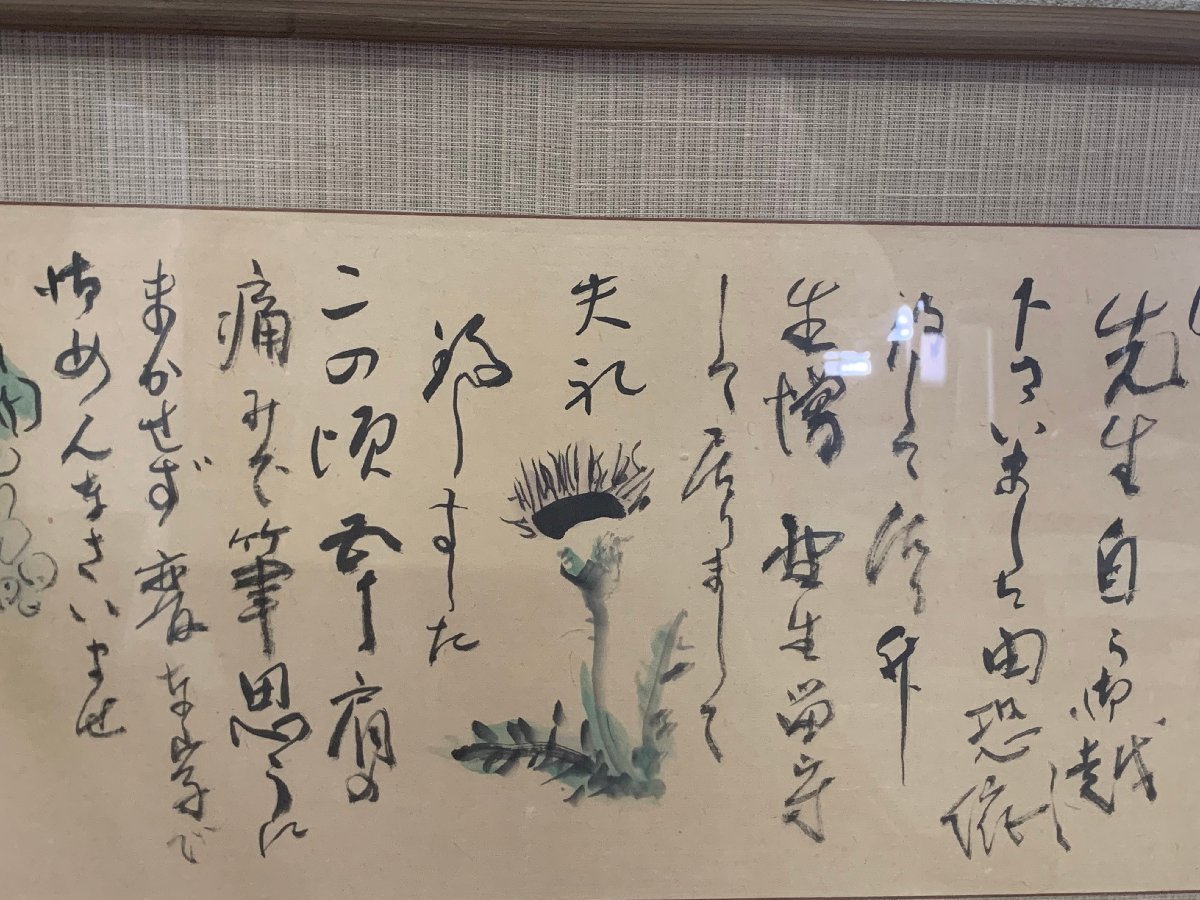 先生自ら御越
下さいました由恐
して
生憎野生留守
して居りまして
失礼
致しました
この頃五十肩の
痛みで筆思うに
まかせず変な字で
御めんなさいませ